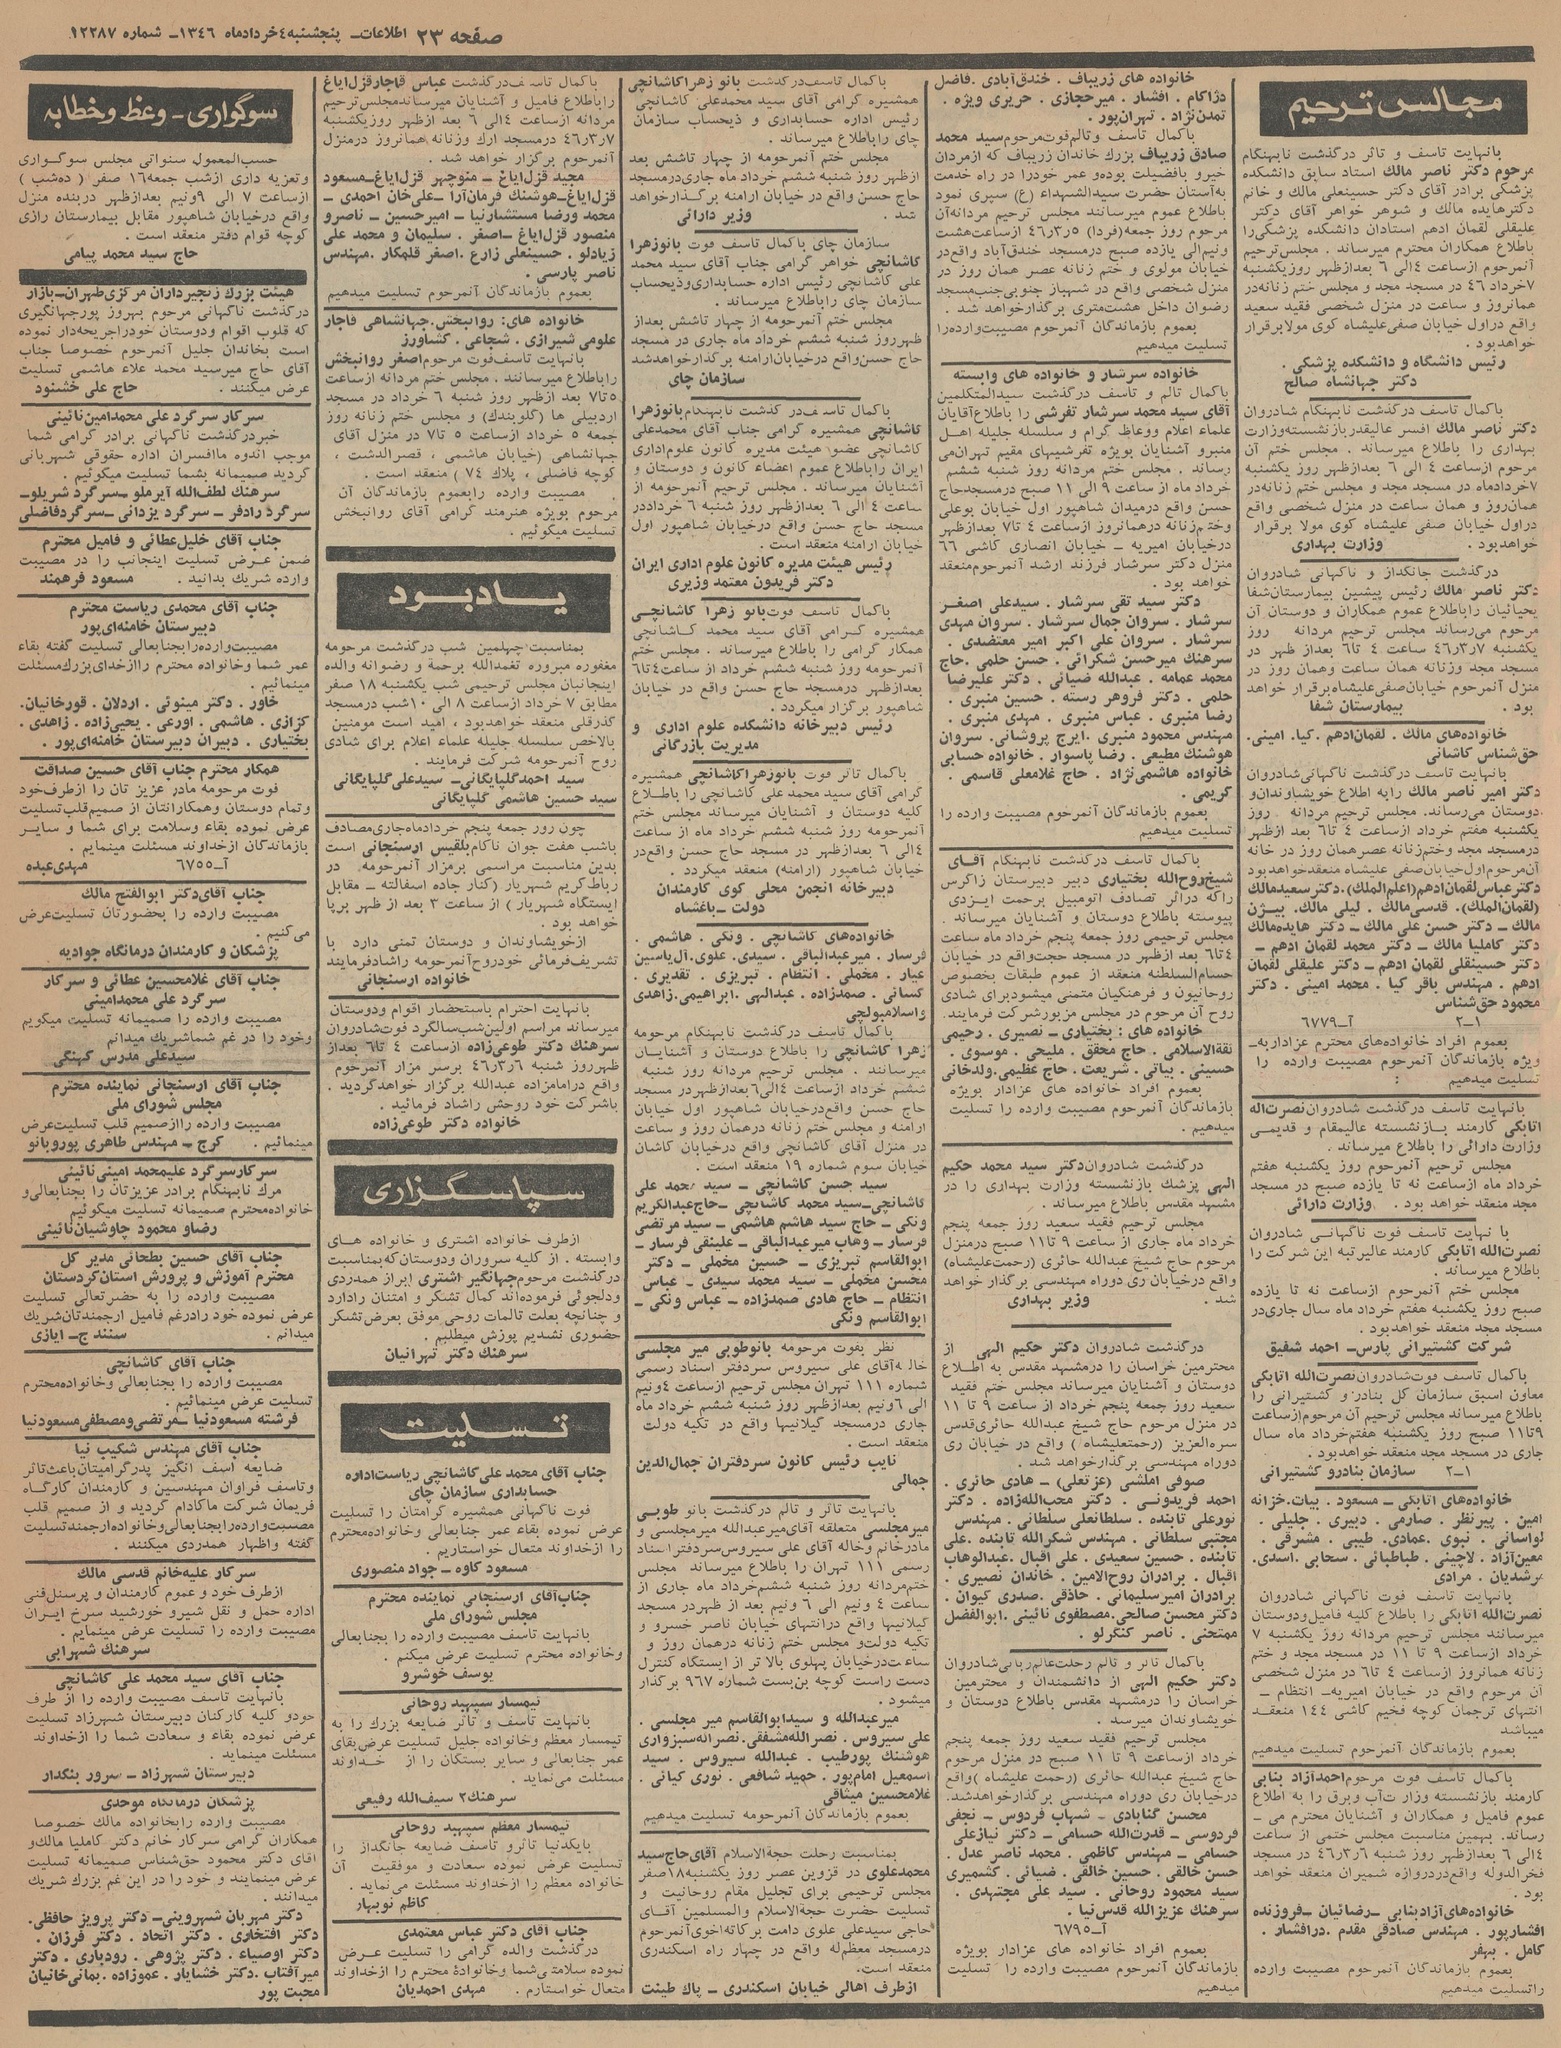 صفحه ۲۳ اطلاعات ـ پنجشنبه ۴ خرداد ماه ۱۳۴۶ ـ شماره ۱۲۲۸۷
مجالس ترحیم
بانهایت تاسف و تاثر درگذشت نابهنگام
مرحوم دکتر ناصر مالک استاد سابق دانشکده
پزشکی برادر آقای دکتر حسینعلی مالک و خانم
دکتر هایده مالک و شوهر خواهر آقای دکتر
علیقلی لقمان ادهم استادان دانشکده پزشکی را
باطلاع همکاران محترم میرساند . مجلس ترحیم
آنمرحوم ازساعت ۴ الی ۶ بعدازظهر روز یکشنبه
۷ خرداد ۴۶ در مسجد مجد و مجلس ختم زنانه در
همانروز و ساعت در منزل شخصی فقید سعید
واقع دراول خیابان صفی علیشاه کوی مولا برقرار
خواهدبود .
رئیس دانشگاه و دانشکده پزشکی .
دکتر جهانشاه صالح
باکمال تاسف درگذشت نابهنگام شادروان
دکتر ناصر مالک افسر عالیقدر بازنشسته وزارت
بهداری را باطلاع میرساند . مجلس ختم آن
مرحوم ازساعت ۴ الی ۶ بعدازظهر روز یکشنبه
۷ خردادماه در مسجد مجد و مجلس ختم زنانه در
همان روز و همان ساعت در منزل شخصی واقع
دراول خیابان صفی علیشاه کوی مولا برقرار
خواهدبود . وزارت بهداری
درگذشت جانگداز و ناگهانی شادروان
دکتر ناصر مالک رئیس پیشین بیمارستان شفا
یحیائیان را باطلاع عموم همکاران و دوستان آن
مرحوم می رساند مجلس ترحیم مردانه روز
یکشنبه ۴۶/۳/۷ ساعت ۴ تا ۶ بعداز ظهر در
مسجد مجد وزنانه همان ساعت وهمان روز در
منزل آنمرحوم خیابان صفی علیشاه برقرار خواهد
بود . بیمارستان شفا
خانواده های مالک . لقمان ادهم . کیا . امینی .
حق شناس کاشانی
بانهایت تاسف درگذشت ناگهانی شادروان
دکتر امیر ناصر مالک رابه اطلاع خویشاوندان و
دوستان می رساند. مجلس ترحیم مردانه روز
یکشنبه هفتم خرداد ازساعت ۴ تا ۶ بعد ازظهر
درمسجد مجد وختم زنانه عصر همان روز در خانه
آن مرحوم اول خیابان صفی علیشاه منعقد خواهد بود
دکتر عباس لقمان ادهم (اعلم الملک). دکتر سعید مالک
(لقمان الملک). قدسی مالک . لیلی مالک . بیژن
مالک ـ دکتر حسن علی مالک ـ دکتر هایده مالک
دکتر کاملیا مالک ـ دکتر محمد لقمان ادهم ـ
دکتر حسینقلی لقمان ادهم ـ دکتر علیقلی لقمان
ادهم . مهندس باقر کیا . محمد امینی . دکتر
محمود حق شناس
۱ـ۲ آ ـ ۶۷۷۹
بعموم افراد خانواده های محترم عزادار به ـ
ویژه بازماندگان آنمرحوم مصیبت وارده را
تسلیت میدهیم :
بانهایت تاسف درگذشت شادروان نصرت اله
اتابکی کارمند بازنشسته عالیمقام و قدیمی
وزارت دارائی را باطلاع میرساند .
مجلس ترحیم آنمرحوم روز یکشنبه هفتم
خرداد ماه ازساعت نه تا یازده صبح در مسجد
مجد منعقد خواهد بود . وزارت دارائی
با نهایت تاسف فوت ناگهانی شادروان
نصرت الله اتابکی کارمند عالیرتبه این شرکت را
باطلاع میرساند .
مجلس ختم آنمرحوم ازساعت نه تا یازده
صبح روز یکشنبه هفتم خرداد ماه سال جاری در
مسجد مجد منعقد خواهدبود .
شرکت کشتیرانی پارس ـ احمد شفیق
باکمال تاسف فوت شادروان نصرت الله اتابکی
معاون اسبق سازمان کل بنادر و کشتیرانی را
باطلاع میرساند مجلس ترحیم آن مرحوم ازساعت
۹ تا ۱۱ صبح روز یکشنبه هفتم خرداد ماه سال
جاری در مسجد مجد منعقد خواهدبود .
۱ـ۲ سازمان بنادر و کشتیرانی
خانواده های اتابکی ـ مسعود . بیات . خزانه
امین . پیرنظر . صارمی . دبیری . جلیلی .
لواسانی . نبوی . عمادی . طیبی . مشرقی .
معین آزاد . لاچینی . طباطبائی . سحابی . اسدی .
رشدیان . مرادی
بانهایت تاسف فوت ناگهانی شادروان
نصرت الله اتابکی را باطلاع کلیه فامیل ودوستان
میرسانند مجلس ترحیم مردانه روز یکشنبه ۷
خرداد ازساعت ۹ تا ۱۱ در مسجد مجد و ختم
زنانه همانروز از ساعت ۴ تا ۶ در منزل شخصی
آن مرحوم واقع در خیابان امیریه ـ انتظام ـ
انتهای ترجمان کوچه فخیم کاشی ۱۴۴ منعقد
میباشد
بعموم بازماندگان آنمرحوم تسلیت میدهیم
باکمال تاسف فوت مرحوم احمدآزاد بنابی
کارمند بازنشسته وزارت آب و برق را به اطلاع
عموم فامیل و همکاران و آشنایان محترم می ـ
رساند. بهمین مناسبت مجلس ختمی از ساعت
۴ الی ۶ بعدازظهر روز شنبه ۴۶/۳/۶ در مسجد
فخرالدوله واقع دردروازه شمیران منعقد خواهد
بود .
خانواده های آزادبنابی ـ رضائیان ـ فروزنده
افشارپور . مهندس صادقی مقدم . درافشار .
کامل . بهفر
بعموم بازماندگان آنمرحوم مصیبت وارده
راتسلیت میدهیم
خانواده های زریباف . خندق آبادی . فاضل
دژاکام . افشار . میرحجازی . حریری ویژه .
تمدن نژاد . تهران پور .
باکمال تاسف وتالم فوت مرحوم سید محمد
صادق زریباف بزرگ خاندان زریباف که ازمردان
خیرو بافضیلت بوده و عمر خودرا در راه خدمت
به آستان حضرت سیدالشهداء (ع) سپری نمود
باطلاع عموم میرسانند مجلس ترحیم مردانه آن
مرحوم روز جمعه (فردا) ۴۶/۳/۵ ازساعت هشت
ونیم الی یازده صبح درمسجد خندق آباد واقع در
خیابان مولوی و ختم زنانه عصر همان روز در
منزل شخصی واقع در شهباز جنوبی جنب مسجد
رضوان داخل هشت متری برگذار خواهد شد .
بعموم بازماندگان آنمرحوم مصیبت وارده را
تسلیت میدهیم
خانواده سرشار و خانواده های وابسته
باکمال تالم و تاسف درگذشت سیدالمتکلمین
آقای سید محمد سرشار تفرشی را باطلاع آقایان
علماء اعلام ووعاظ کرام و سلسله جلیله اهل
منبرو آشنایان بویژه تفرشیهای مقیم تهران می
رساند . مجلس ختم مردانه روز شنبه ششم
خرداد ماه از ساعت ۹ الی ۱۱ صبح درمسجد حاج
حسن واقع درمیدان شاهپور اول خیابان بوعلی
وختم زنانه درهمانروز از ساعت ۴ تا ۷ بعدازظهر
درخیابان امیریه ـ خیابان انصاری کاشی ۶۶
منزل دکتر سرشار فرزند ارشد آنمرحوم منعقد
خواهد بود .
دکتر سید تقی سرشار . سیدعلی اصغر
سرشار . سروان جمال سرشار . سروان مهدی
سرشار . سروان علی اکبر امیر معتضدی .
سرهنگ میرحسن شکرائی . حسن حلمی . حاج
محمد عمامه . عبدالله ضیائی . دکتر علیرضا
حلمی . دکتر فروهر رسته . حسین منبری .
رضا منبری . عباس منبری . مهدی منبری .
مهندس محمود منبری . ایرج پروشانی . سروان
هوشنگ مطیعی . رضا پاسوار . خانواده حسابی
خانواده هاشمی نژاد . حاج غلامعلی قاسمی .
کریمی .
بعموم بازماندگان آنمرحوم مصیبت وارده را
تسلیت میدهیم
باکمال تاسف درگذشت نابهنگام آقای
شیخ روح الله بختیاری دبیر دبیرستان زاگرس
راکه دراثر تصادف اتومبیل برحمت ایزدی
پیوسته باطلاع دوستان و آشنایان میرساند .
مجلس ترحیمی روز جمعه پنجم خرداد ماه ساعت
۴ تا ۶ بعد ازظهر در مسجد حجت واقع در خیابان
حسام السلطنه منعقد از عموم طبقات بخصوص
روحانیون و فرهنگیان متمنی میشود برای شادی
روح آن مرحوم در مجلس مزبور شرکت فرمایند .
خانواده های : بختیاری ـ نصیری . رحیمی
ثقةالاسلامی . حاج محقق . ملیحی . موسوی .
حسینی . بیاتی . شریعت . حاج عظیمی . ولدخانی
بعموم افراد خانواده های عزادار بویژه
بازماندگان آنمرحوم مصیبت وارده را تسلیت
میدهیم .
درگذشت شادروان دکتر سید محمد حکیم
الهی پزشک بازنشسته وزارت بهداری را در
مشهد مقدس باطلاع میرساند .
مجلس ترحیم فقید سعید روز جمعه پنجم
خرداد ماه جاری از ساعت ۹ تا ۱۱ صبح درمنزل
مرحوم حاج شیخ عبدالله حائری (رحمت علیشاه)
واقع درخیابان ری دوراه مهندسی برگذار خواهد
شد . وزیر بهداری
درگذشت شادروان دکتر حکیم الهی از
محترمین خراسان را درمشهد مقدس به اطلاع
دوستان و آشنایان میرساند مجلس ختم فقید
سعید روز جمعه پنجم خرداد از ساعت ۹ تا ۱۱
در منزل مرحوم حاج شیخ عبدالله حائری قدس
سره العزیز (رحمتعلیشاه) واقع در خیابان ری
دوراه مهندسی برگذار خواهد شد .
صوفی املشی (عزتعلی) ـ هادی حائری .
احمد فریدونی . دکتر محب الله زاده . دکتر
نورعلی تابنده . سلطانعلی سلطانی . مهندس
مجتبی سلطانی . مهندس شکرالله تابنده . علی
تابنده . حسین سعیدی . علی اقبال . عبدالوهاب
اقبال . برادران روح الامین . خاندان نصیری .
برادران امیرسلیمانی . حاذقی . صدری کیوان .
دکتر محسن صالحی . مصطفوی نائینی . ابوالفضل
ممتحنی . ناصر کنگرلو .
باکمال تاثر و تالم رحلت عالم ربانی شادروان
دکتر حکیم الهی از دانشمندان و محترمین
خراسان را درمشهد مقدس باطلاع دوستان و
خویشاوندان میرسد .
مجلس ترحیم فقید سعید روز جمعه پنجم
خرداد ازساعت ۹ تا ۱۱ صبح در منزل مرحوم
حاج شیخ عبدالله حائری (رحمت علیشاه) واقع
درخیابان ری دوراه مهندسی برگذار خواهد شد.
محسن گنابادی . شهاب فردوس ـ نجفی
فردوسی ـ قدرت الله حسامی ـ دکتر نیازعلی
حسامی ـ مهندس کاظمی . محمد ناصر عدل .
حسن خالقی . حسین خالقی . ضیائی . کشمیری
سید محمود روحانی . سید علی مجتهدی .
سرهنگ عزیزالله قدس نیا .
آ ـ ۶۷۹۵
بعموم افراد خانواده های عزادار بویژه
بازماندگان آنمرحوم مصیبت وارده را تسلیت
میدهیم
باکمال تاسف درگذشت بانو زهرا کاشانچی
همشیره گرامی آقای سید محمدعلی کاشانچی
رئیس اداره حسابداری و ذیحساب سازمان
چای را باطلاع میرساند .
مجلس ختم آنمرحومه از چهار تاشش بعد
از ظهر روز شنبه ششم خرداد ماه جاری درمسجد
حاج حسن واقع در خیابان ارامنه برگذار خواهد
شد . وزیر دارائی
سازمان چای باکمال تاسف فوت بانوزهرا
کاشانچی خواهر گرامی جناب آقای سید محمد
علی کاشانچی رئیس اداره حسابداری و ذیحساب
سازمان چای را باطلاع میرساند .
مجلس ختم آنمرحومه از چهار تاشش بعداز
ظهر روز شنبه ششم خرداد ماه جاری در مسجد
حاج حسن واقع درخیابان ارامنه برگذار خواهد شد
سازمان چای
باکمال تاسف درگذشت نابهنگام بانوزهرا
کاشانچی همشیره گرامی جناب آقای محمدعلی
کاشانچی عضو هیئت مدیره کانون علوم اداری
ایران را باطلاع عموم اعضاء کانون و دوستان و
آشنایان میرساند . مجلس ترحیم آنمرحومه از
ساعت ۴ الی ۶ بعدازظهر روز شنبه ۶ خرداد در
مسجد حاج حسن واقع درخیابان شاهپور اول
خیابان ارامنه منعقد است .
رئیس هیئت مدیره کانون علوم اداری ایران
دکتر فریدون معتمد وزیری
باکمال تاسف فوت بانو زهرا کاشانچی
همشیره گرامی آقای سید محمد کاشانچی
همکار گرامی را باطلاع میرساند . مجلس ختم
آنمرحومه روز شنبه ششم خرداد از ساعت ۴ تا ۶
بعدازظهر درمسجد حاج حسن واقع در خیابان
شاهپور برگزار میگردد .
رئیس دبیرخانه دانشکده علوم اداری و
مدیریت بازرگانی
باکمال تاثر فوت بانوزهرا کاشانچی همشیره
گرامی آقای سید محمد علی کاشانچی را باطلاع
کلیه دوستان و آشنایان میرساند مجلس ختم
آنمرحومه روز شنبه ششم خرداد ماه از ساعت
۴ الی ۶ بعدازظهر در مسجد حاج حسن واقع در
خیابان شاهپور (ارامنه) منعقد میگردد .
دبیرخانه انجمن محلی کوی کارمندان
دولت ـ باغشاه
خانواده های کاشانچی . ونکی . هاشمی .
فرسار . میرعبدالباقی . سیدی . علوی . آل یاسین
عیار . مخملی . انتظام . تبریزی . تقدیری .
کسائی . صمدزاده . عبدالهی . ابراهیمی . زاهدی
واسلامبولچی
باکمال تاسف درگذشت نابهنگام مرحومه
زهرا کاشانچی را باطلاع دوستان و آشنایان
میرسانند . مجلس ترحیم مردانه روز شنبه
ششم خرداد ازساعت ۴ الی ۶ بعدازظهر در مسجد
حاج حسن واقع درخیابان شاهپور اول خیابان
ارامنه و مجلس ختم زنانه درهمان روز و ساعت
در منزل آقای کاشانچی واقع درخیابان کاشان
خیابان سوم شماره ۱۹ منعقد است .
سید حسن کاشانچی ـ سید محمد علی
کاشانچی ـ سید محمد کاشانچی ـ حاج عبدالکریم
ونکی ـ حاج سید هاشم هاشمی ـ سید مرتضی
فرسار ـ وهاب میرعبدالباقی ـ علینقی فرسار ـ
ابوالقاسم تبریزی ـ حسین مخملی ـ دکتر
محسن مخملی ـ سید محمد سیدی ـ عباس
انتظام ـ حاج هادی صمدزاده ـ عباس ونکی ـ
ابوالقاسم ونکی
نظر بفوت مرحومه بانوطوبی میر مجلسی
خاله آقای علی سیروس سردفتر اسناد رسمی
شماره ۱۱۱ تهران مجلس ترحیم ازساعت ۴ ونیم
الی ۶ ونیم بعدازظهر روز شنبه ششم خرداد ماه
جاری درمسجد گیلانیها واقع در تکیه دولت
منعقد است .
نایب رئیس کانون سردفتران جمال الدین
جمالی
بانهایت تاثر و تالم درگذشت بانو طوبی
میرمجلسی متعلقه آقای میرعبدالله میرمجلسی و
مادرخانم وخاله آقای علی سیروس سردفتر اسناد
رسمی ۱۱۱ تهران را باطلاع میرساند مجلس
ختم مردانه روز شنبه ششم خرداد ماه جاری از
ساعت ۴ ونیم الی ۶ ونیم بعدازظهر در مسجد
گیلانیها واقع درانتهای خیابان ناصر خسرو و
تکیه دولت و مجلس ختم زنانه درهمان روز و
ساعت درخیابان پهلوی بالا تر از ایستگاه کنترل
دست راست کوچه بن بست شماره ۹۶۷ برگذار
میشود .
میرعبدالله و سیدابوالقاسم میر مجلسی .
علی سیروس . نصرالله مشفقی . نصراله سبزواری
هوشنگ پورطیب . عبدالله سیروس . سید
اسمعیل امام پور . حمید شافعی . نوری کیانی .
غلامحسین میثاقی .
بعموم بازماندگان آنمرحومه تسلیت میدهیم
بمناسبت رحلت حجةالاسلام آقای حاج سید
محمدعلوی در قزوین عصر روز یکشنبه ۱۸ صفر
مجلس ترحیمی برای تجلیل مقام روحانیت و
تسلیت حضرت حجةالاسلام والمسلمین آقای
حاجی سیدعلی علوی دامت برکاته اخوی آنمرحوم
درمسجد معظم له واقع در چهار راه اسکندری
منعقد است .
ازطرف اهالی خیابان اسکندری ـ پاک طینت
باکمال تاسف درگذشت عباس قاجار قزل ایاغ
را باطلاع فامیل و آشنایان میرساند مجلس ترحیم
مردانه ازساعت ۴ الی ۶ بعد ازظهر روز یکشنبه
۴۶/۳/۷ درمسجد ارک وزنانه همانروز درمنزل
آنمرحوم برگزار خواهد شد .
مجید قزل ایاغ ـ منوچهر قزل ایاغ ـ مسعود
قزل ایاغ ـ هوشنگ فرمان آرا ـ علی خان احمدی ـ
محمد ورضا مستشارنیا ـ امیرحسین ـ ناصرو
منصور قزل ایاغ ـ اصغر . سلیمان و محمد علی
زیادلو . حسینعلی زارع . اصغر قلمکار . مهندس
ناصر پارسی .
بعموم بازماندگان آنمرحوم تسلیت میدهیم
خانواده های : روانبخش . جهانشاهی قاجار
علومی شیرازی . شجاعی . کشاورز
بانهایت تاسف فوت مرحوم اصغر روانبخش
را باطلاع میرسانند . مجلس ختم مردانه ازساعت
۵ تا ۷ بعد ازظهر روز شنبه ۶ خرداد در مسجد
اردبیلی ها (گلوبندک) و مجلس ختم زنانه روز
جمعه ۵ خرداد ازساعت ۵ تا ۷ در منزل آقای
جهانشاهی (خیابان هاشمی ، قصرالدشت ،
کوچه فاضلی ، پلاک ۷۴) منعقد است .
مصیبت وارده رابعموم بازماندگان آن
مرحوم بویژه هنرمند گرامی آقای روانبخش
تسلیت میگوئیم .
یادبود
بمناسبت چهلمین شب درگذشت مرحومه
مغفوره مبروره تغمدالله برحمة و رضوانه والده
اینجانبان مجلس ترحیمی شب یکشنبه ۱۸ صفر
مطابق ۷ خرداد ازساعت ۸ الی ۱۰ شب درمسجد
گذرقلی منعقد خواهدبود ، امید است مومنین
بالاخص سلسله جلیله علماء اعلام برای شادی
روح آنمرحومه شرکت فرمایند .
سید احمد گلپایگانی ـ سیدعلی گلپایگانی
سید حسین هاشمی گلپایگانی
چون روز جمعه پنجم خرداد ماه جاری مصادف
باشب هفت جوان ناکام بلقیس ارسنجانی است
بدین مناسبت مراسمی برمزار آنمرحومه در
رباط کریم شهریار (کنار جاده اسفالته ـ مقابل
ایستگاه شهریار) از ساعت ۳ بعد از ظهر برپا
خواهد بود .
ازخویشاوندان و دوستان تمنی دارد با
تشریف فرمائی خود روح آنمرحومه را شاد فرمایند
خانواده ارسنجانی
بانهایت احترام باستحضار اقوام ودوستان
میرساند مراسم اولین شب سالگرد فوت شادروان
سرهنگ دکتر طوعی زاده ازساعت ۴ تا ۶ بعداز
ظهر روز شنبه ۴۶/۳/۶ برسر مزار آنمرحوم
واقع در امامزاده عبدالله برگزار خواهدگردید .
باشرکت خود روحش راشاد فرمائید .
خانواده دکتر طوعی زاده
سپاسگزاری
ازطرف خانواده اشتری و خانواده های
وابسته . از کلیه سروران ودوستان که بمناسبت
درگذشت مرحوم جهانگیر اشتری ابراز همدردی
ودلجوئی فرموده اند کمال تشکر و امتنان رادارد
و چنانچه بعلت تالمات روحی موفق بعرض تشکر
حضوری نشدیم پوزش میطلبم .
سرهنگ دکتر تهرانیان
تسلیت
جناب آقای محمد علی کاشانچی ریاست اداره
حسابداری سازمان چای
فوت ناگهانی همشیره گرامتان را تسلیت
عرض نموده بقاء عمر جنابعالی وخانواده محترم
را از خداوند متعال خواستاریم .
مسعود کاوه ـ جواد منصوری
جناب آقای ارسنجانی نماینده محترم
مجلس شورای ملی
بانهایت تاسف مصیبت وارده را بجنابعالی
وخانواده محترم تسلیت عرض میکنم .
یوسف خوشرو
تیمسار سپهبد روحانی
بانهایت تاسف و تاثر ضایعه بزرگ را به
تیمسار معظم وخانواده جلیل تسلیت عرض بقای
عمر جنابعالی و سایر بستگان را از خداوند
مسئلت می نماید .
سرهنگ ۲ سیف الله رفیعی .
تیمسار معظم سپهبد روحانی
بایکدنیا تاثرو تاسف ضایعه جانگداز را
تسلیت عرض نموده سعادت و موفقیت آن
خانواده معظم را ازخداوند مسئلت می نماید .
کاظم نوبهار
جناب آقای دکتر عباس معتمدی
درگذشت والده گرامی را تسلیت عرض
نموده سلامتی شما وخانوادۀ محترم را ازخداوند
متعال خواستارم . مهدی احمدیان
سوگواری ـ وعظ وخطابه
حسب المعمول سنواتی مجلس سوگواری
وتعزیه داری ازشب جمعه ۱۶ صفر (ده شب)
از ساعت ۷ الی ۹ ونیم بعدازظهر دربنده منزل
واقع درخیابان شاهپور مقابل بیمارستان رازی
کوچه قوام دفتر منعقد است .
حاج سید محمد پیامی
هیئت بزرگ زنجیرداران مرکزی طهران ـ بازار
درگذشت ناگهانی مرحوم بهروز پورجهانگیری
که قلوب اقوام ودوستان خودراجریحه دار نموده
است بخاندان جلیل آنمرحوم خصوصا جناب
آقای حاج میرسید محمد علاء هاشمی تسلیت
عرض میکنند . حاج علی خشنود
سرکار سرگرد علی محمدامین نائینی
خبر درگذشت ناگهانی برادر گرامی شما
موجب اندوه ماافسران اداره حقوقی شهربانی
گردید صمیمانه بشما تسلیت میگوئیم .
سرهنگ لطف الله آیرملو ـ سرگرد شریلو ـ
سرگرد رادفر ـ سرگرد یزدانی ـ سرگرد فاضلی
جناب آقای خلیل عطائی و فامیل محترم
ضمن عرض تسلیت اینجانب را در مصیبت
وارده شریک بدانید . مسعود فرهمند
جناب آقای محمدی ریاست محترم
دبیرستان خامنه ای پور
مصیبت وارده را بجنابعالی تسلیت گفته بقاء
عمر شما وخانواده محترم را ازخدای بزرگ مسئلت
مینمائیم .
خاور . دکتر مینوئی . اردلان . قورخانیان .
کزازی . هاشمی . اورعی . یحیی زاده . زاهدی .
بختیاری . دبیران دبیرستان خامنه ای پور .
همکار محترم جناب آقای حسین صداقت
فوت مرحومه مادر عزیز تان را ازطرف خود
وتمام دوستان وهمکارانتان از صمیم قلب تسلیت
عرض نموده بقاء وسلامت برای شما و سایر
بازماندگان ازخداوند مسئلت مینمایم .
آ ـ ۶۷۵۵ مهدی عبده
جناب آقای دکتر ابوالفتح مالک
مصیبت وارده را بحضورتان تسلیت عرض
می کنیم .
پزشکان و کارمندان درمانگاه جوادیه
جناب آقای غلامحسین عطائی و سرکار
سرگرد علی محمدامینی
مصیبت وارده را صمیمانه تسلیت میگویم
وخود را در غم شما شریک میدانم
سیدعلی مدرس گهنگی
جناب آقای ارسنجانی نماینده محترم
مجلس شورای ملی
مصیبت وارده را ازصمیم قلب تسلیت عرض
مینمائیم . کرج ـ مهندس طاهری پوروبانو
سرکار سرگرد علیمحمد امینی نائینی
مرگ نابهنگام برادر عزیزتان را بجنابعالی و
خانواده محترم صمیمانه تسلیت میگوئیم
رضاو محمود چاوشیان نائینی
جناب آقای حسین بطحائی مدیر کل
محترم آموزش و پرورش استان کردستان
مصیبت وارده را به حضرتعالی تسلیت
عرض نموده خود رادرغم فامیل ارجمندتان شریک
میدانم . سنندج ـ ایازی
جناب آقای کاشانچی
مصیبت وارده را بجنابعالی وخانواده محترم
تسلیت عرض مینمائیم .
فرشته مسعودنیا ـ مرتضی ومصطفی مسعودنیا
جناب آقای مهندس شکیب نیا
ضایعه اسف انگیز پدرگرامیتان باعث تاثر
وتاسف فراوان مهندسین و کارمندان کارگاه
فریمان شرکت ماکادام گردید و از صمیم قلب
مصیبت وارده رابجنابعالی وخانواده ارجمند تسلیت
گفته واظهار همدردی میکنند .
سرکار علیه خانم قدسی مالک
ازطرف خود و عموم کارمندان و پرسنل فنی
اداره حمل و نقل شیرو خورشید سرخ ایران
مصیبت وارده را تسلیت عرض مینمایم .
سرهنگ شهرابی
جناب آقای سید محمد علی کاشانچی
بانهایت تاسف مصیبت وارده را از طرف
خودو کلیه کارکنان دبیرستان شهرزاد تسلیت
عرض نموده بقاء و سعادت شما را ازخداوند
مسئلت مینماید .
دبیرستان شهرزاد ـ سرور بنکدار
پزشکان درمانگاه موحدی
مصیبت وارده رابخانواده مالک خصوصا
همکاران گرامی سرکار خانم دکتر کاملیا مالک و
آقای دکتر محمود حق شناس صمیمانه تسلیت
عرض مینمایند و خود را در این غم بزرگ شریک
میدانند .
دکتر مهربان شهروینی ـ دکتر پرویز حافظی .
دکتر افتخاری . دکتر اتحاد . دکتر فرزان .
دکتر اوصیاء . دکتر پژوهی . رودباری . دکتر
میرآفتاب . دکتر خشایار . عموزاده . یمانی خانیان
محبت پور